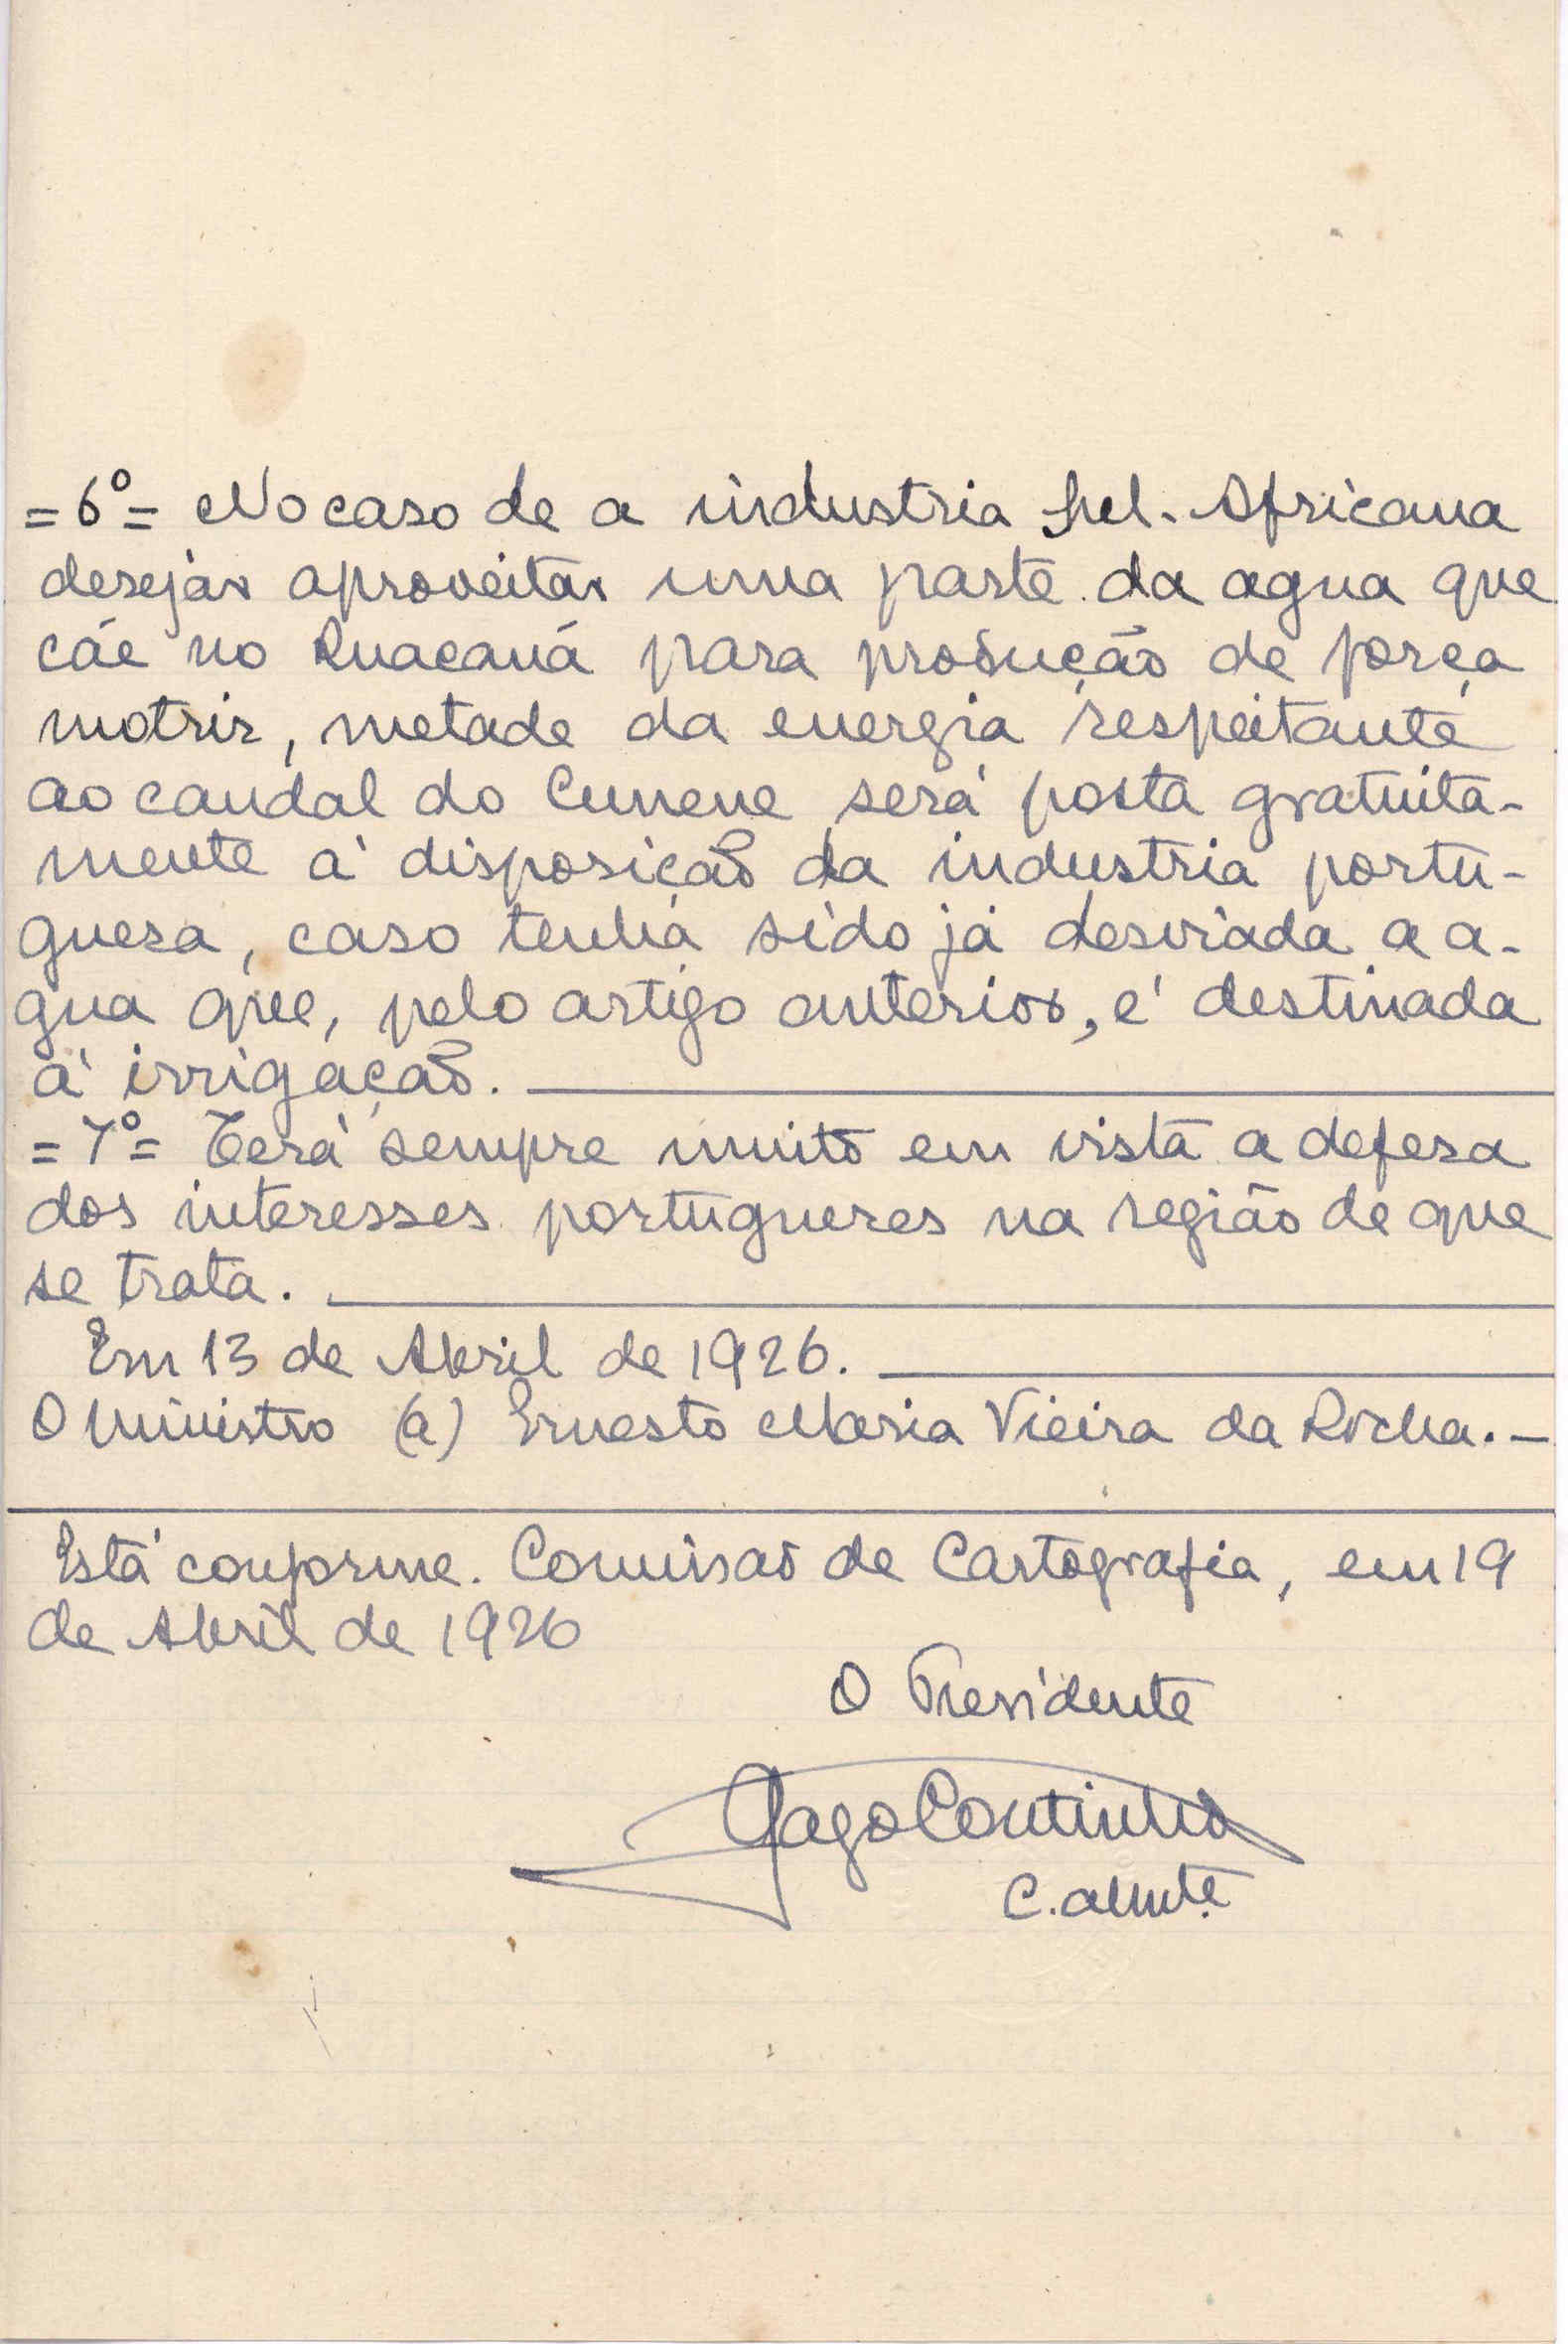 =6º= No caso de a industria Sul-Africana
desejar aproveitar uma parte da agua que
cáe no Ruacaná para produção de força
motriz, metade da energia respeitante
ao caudal do Cunene será posta gratuita-
mente á disposição da industria portu-
guesa, caso tenha sido já desviada a a-
gua que, pelo artigo anterior, é destinada
á irrigação.
=7º= Terá sempre muito em vista a defesa
dos interesses portugueses na região de que
se trata.
Em 13 de Abril de 1926.
O Ministro (a) Ernesto Maria Vieira da Rocha. -
Está conforme. Comissão de Cartografia, em 19
de Abril de 1926
O Presidente
Gago Coutinho
C. almte.